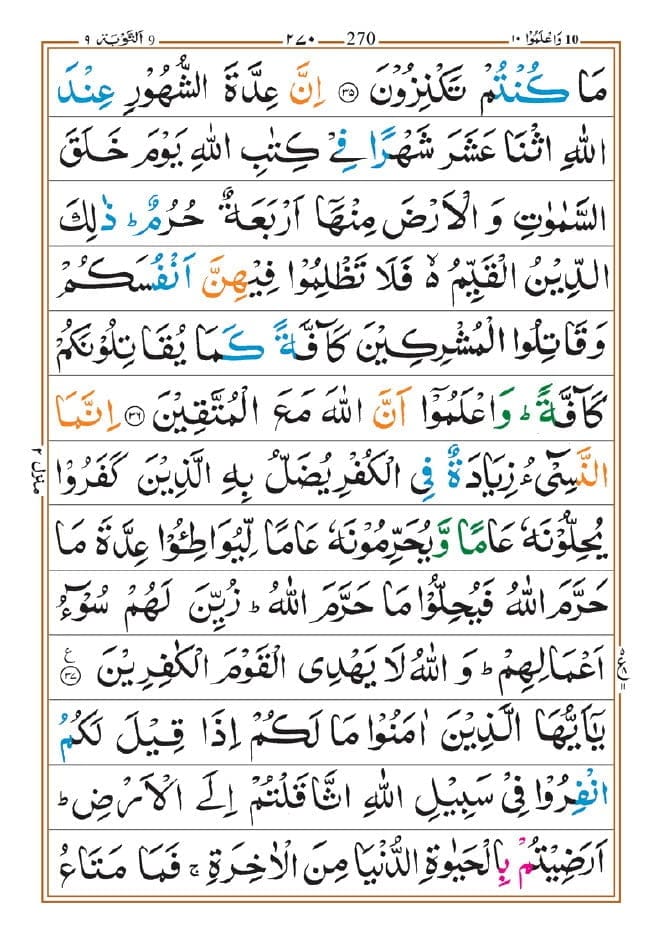 10 وَاعْلَمُوْۤا ۱۰ 270 ۲۷۰ 9 اَلتَّوْبَة ۹
مَا كُنْتُمْ تَكْنِزُوْنَ ۝۳۵ اِنَّ عِدَّةَ الشُّهُوْرِ عِنْدَ
اللّٰهِ اثْنَا عَشَرَ شَهْرًا فِيْ كِتٰبِ اللّٰهِ يَوْمَ خَلَقَ
السَّمٰوٰتِ وَ الْاَرْضَ مِنْهَاۤ اَرْبَعَةٌ حُرُمٌ ؕ ذٰلِكَ
الدِّيْنُ الْقَيِّمُ ۙ۬ فَلَا تَظْلِمُوْا فِيْهِنَّ اَنْفُسَكُمْ
وَ قَاتِلُوا الْمُشْرِكِيْنَ كَآفَّةً كَمَا يُقَاتِلُوْنَكُمْ
كَآفَّةً ؕ وَاعْلَمُوْۤا اَنَّ اللّٰهَ مَعَ الْمُتَّقِيْنَ ۝۳۶ اِنَّمَا
النَّسِيْٓءُ زِيَادَةٌ فِي الْكُفْرِ يُضَلُّ بِهِ الَّذِيْنَ كَفَرُوْا
منزل ۲
يُحِلُّوْنَهٗ عَامًا وَّيُحَرِّمُوْنَهٗ عَامًا لِّيُوَاطِـُٔوْا عِدَّةَ مَا
حَرَّمَ اللّٰهُ فَيُحِلُّوْا مَا حَرَّمَ اللّٰهُ ؕ زُيِّنَ لَهُمْ سُوْٓءُ
اَعْمَالِهِمْ ؕ وَ اللّٰهُ لَا يَهْدِى الْقَوْمَ الْكٰفِرِيْنَ ۝۳۷ ع
يٰۤاَيُّهَا الَّذِيْنَ اٰمَنُوْا مَا لَكُمْ اِذَا قِيْلَ لَكُمُ
انْفِرُوْا فِيْ سَبِيْلِ اللّٰهِ اثَّاقَلْتُمْ اِلَى الْاَرْضِ ؕ
اَرَضِيْتُمْ بِالْحَيٰوةِ الدُّنْيَا مِنَ الْاٰخِرَةِ ۚ فَمَا مَتَاعُ